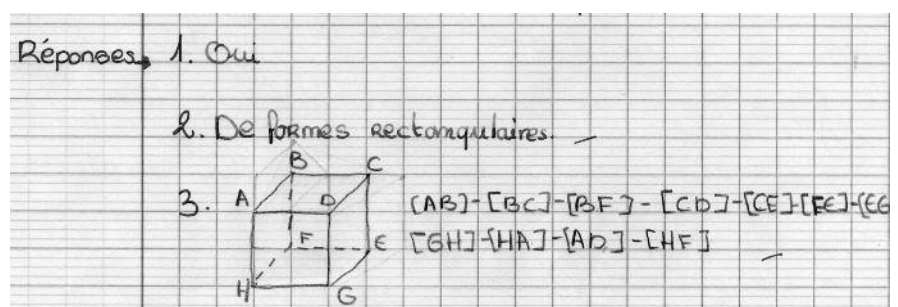 Réponses 1. Oui
2. De formes rectangulaires.
B C
3. A D [AB]-[BC]-[BF]-[CD]-[CE]-[FE]-[EG
F E [GH]-[HA]-[AD]-[HF]
H G